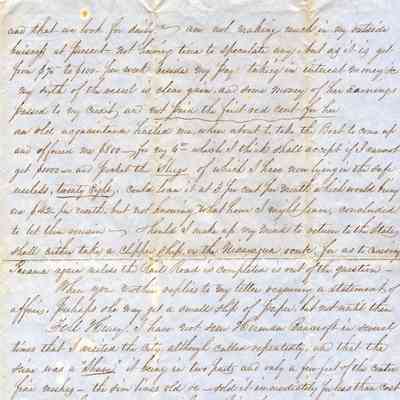 and that we look for daily — am not making much in my outside
business at present not having time to speculate any, but as it is get
from $75 to $100 per week besides my pay taking in interest money &c
my sixth of the vessel is clear gain and some money of her earnings
passed to my credit, and not paid the first red cent for her
an old acquaintance hailed me when about to take the Boat to come up
and offered me $800 — for my 6th which I think shall accept if I cannot
get $1000 — and pocket the Slugs of which I have now lying in the safe
useless, twenty Eight, could loan it at 3 per cent per month which would bring
me $42 per month, but not knowing what hour I might leave, concluded
to let them remain — Should I make up my mind to return to the States
shall either take a Clipper Ship or the Nicaragua route, for as to crossing
Panama again unless the Rail Road is completed is out of the question —
When your mother replies to my letter requesting a statement of
affairs, perhaps she may get a small slip of paper, but not until then
Tell Henry, I have not seen Herman Bancroft in several
times that I visited the city although called repeatedly, and that the
seine was a it being in two parts and only a few feet of the center
fine meshes — the